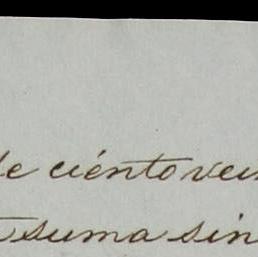 de ciento vei
suma sin